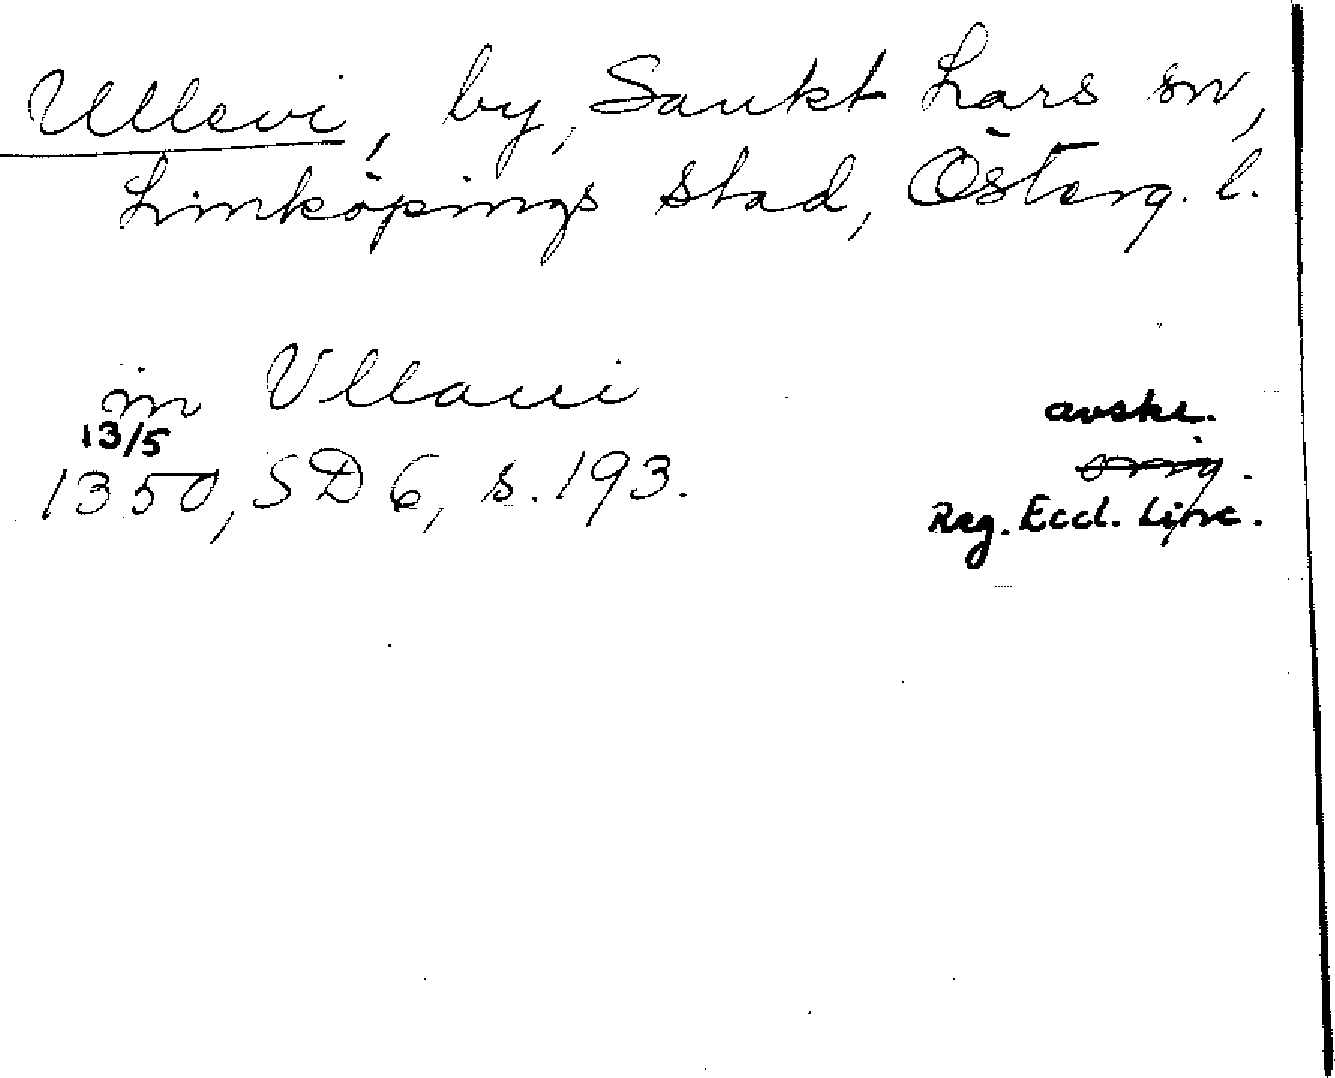 Ullevi, by, Sankt Lars sn,
Linköpings stad, Österg. l.
in Vllaui
13/5
1350, SD 6, s. 193.
avskr.
orig.
Reg. Eccl. Linc.